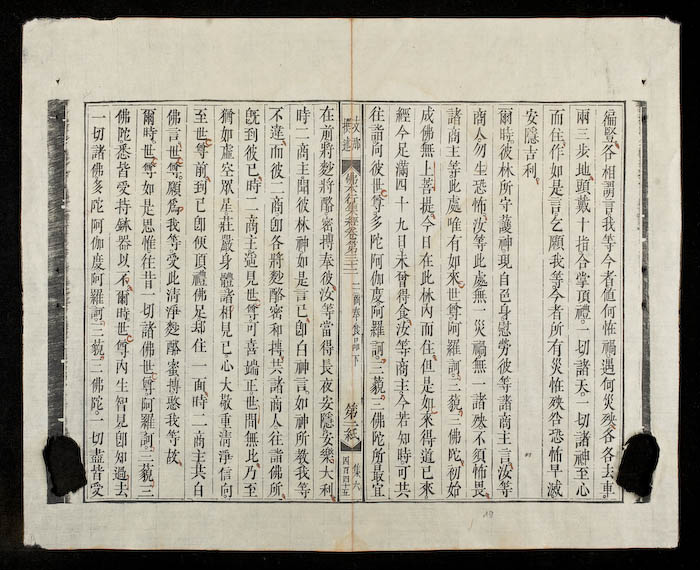 徧豎各相謂言我等今者値何恠禍遇何災殃各各去車
兩三步地頭戴十指合掌頂禮一切諸天一切諸神至心
而住作如是言乞願我等今者所有災恠殃咎恐怖早滅
安隱吉利
爾時彼林所守護神現自色身慰勞彼等諸商主言汝等
商人勿生恐怖汝等此處無一災禍無一諸殃不須怖畏
諸商主等此處唯有如來世尊阿羅訶三藐三佛陀初始
成佛無上菩提今日在此林內而住但是如來得道已來
經今足滿四十九日未曾得食汝等商主今若知時可共
往詣向彼世尊多陀阿伽度阿羅訶三藐三佛陀所最宜
佛本行集經卷第三十二
二商奉食品下
第二紙
集六
四百四十五
在前將麨將酪密摶奉彼汝等當得長夜安隱安樂大利
時二商主聞彼林神如是言已卽白神言如神所教我等
不違而彼二商卽各將麨酪密和摶共諸商人往詣佛所
旣到彼已時二商主遙見世尊可喜端正世間無此乃至
猶如虛空眾星莊嚴身體諸相見已心大敬重淸淨信向
至世尊前到已卽便頂禮佛足却住一面時二商主共白
佛言世尊願爲我等受此淸淨麨酪蜜摶愍我等故
爾時世尊如是思惟往昔一切諸佛世尊阿羅訶三藐三
佛陀悉皆受持鉢器以不爾時世尊內生智見卽知過去
一切諸佛多陀阿伽度阿羅訶三藐三佛陀一切盡皆受